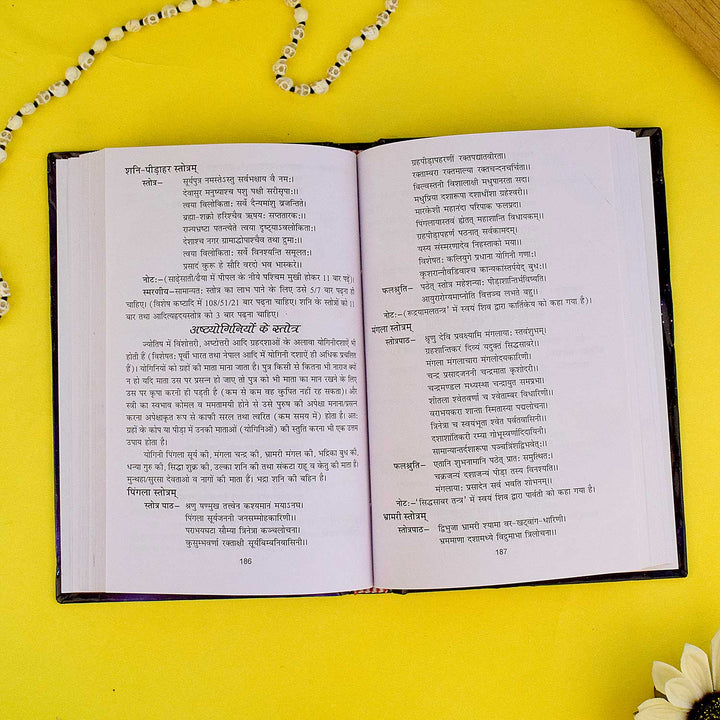 शनि-पीड़ाहर स्तोत्रम्
स्तोत्र– सूर्यपुत्र नमस्तेऽस्तु सर्वभक्षाय वै नमः।
देवासुर मनुष्याश्च पशु पक्षी सरीसृपाः।।
त्वया विलोकिताः सर्वे दैन्यमांशु व्रजन्तिते।
ब्रह्मा-शक्रो हरिश्चैव ऋषयः सप्ततारकः।।
राज्यभ्रष्टा पतन्त्येते त्वया दृष्ट्याऽवलोकिताः।
देशाश्च नगर ग्रामाद्वीपाश्चैव तथा द्रुमाः।।
त्वया विलोकिताः सर्वे विनश्यन्ति समूलतः।
प्रसादं कुरू हे सौरि वरदो भव भास्करे।।
नोटः–(साढ़ेसाती/ढैया में पीपल के नीचे पश्चिम मुखी होकर 11 बार पढ़ें)।
स्मरणीय–सामान्यतः स्तोत्र का लाभ पाने के लिए उसे 5/7 बार पढ़ना
चाहिए। (विशेष कष्टादि में 108/51/21 बार पढ़ना चाहिए। शनि के स्तोत्रों को 11
बार तथा आदित्यहृदयस्तोत्र को 3 बार पढ़ना चाहिए।
अष्टयोगिनियों के स्तोत्र
ज्योतिष में विंशोत्तरी, अष्टोत्तरी आदि ग्रहदशाओं के अलावा योगिनीदशाएं भी
होती हैं (विशेषतः पूर्वी भारत तथा नेपाल आदि में योगिनी दशाएं ही अधिक प्रचलित
हैं)। योगिनियों को ग्रहों की माता माना जाता है। पुत्र किसी से कितना भी नाराज क्यों
न हो यदि माता उस पर प्रसन्न हो जाए तो पुत्र को भी माता का मान रखने के लिए
उस पर कृपा करनी ही पड़ती है (कम से कम वह कुपित नहीं रह सकता)। और
स्त्री का स्वभाव कोमल व ममतामयी होने से उसे पुरुष की अपेक्षा मनाना/प्रसन्न
करना अपेक्षाकृत रूप से काफी सरल तथा त्वरित (कम समय में) होता है। अतः
ग्रहों के कोप या पीड़ा में उनकी माताओं (योगिनियों) की स्तुति करना भी एक उत्तम
उपाय होता है।
योगिनी पिंगला सूर्य की, मंगला चन्द्र की, भ्रामरी मंगल की, भद्रिका बुध की,
धन्या गुरु की, सिद्धा शुक्र की, उल्का शनि की तथा संकटा राहु व केतु की माता हैं।
मुन्थहा/सुरसा देवताओ व नागों की माता हैं। भद्रा शनि की बहिन है।
पिंगला स्तोत्रम्
स्तोत्र पाठ– श्रणु षण्मुख तत्त्वेन कश्यमान मयाऽनघ।
पिंगला सूर्यजननी जनसम्मोहकारिणी।।
पराभयघटा सौम्या त्रिनेत्रा कञ्चलोचना।
कुसुम्भवर्णा रक्ताक्षी सूर्यबिम्बनिवासिनी।।
186
ग्रहपीड़ापहरणीं रक्तपद्मातयोरता।
रक्ताम्वरा रक्तमाल्या रक्तचन्दनचर्चिता।।
बिल्वस्तनी विशालाक्षी मधुपानरता सदा।
मधुप्रिया दशारूपा दशाधीशा ग्रहेश्वरी।।
मारकेशी महानंदा परिपाक फलप्रदा।
पिंगलायास्तवं ह्येतत् महाशान्ति विधायकम्।।
ग्रहपीड़ापहर्णं पठनात् सर्वकामदम्।
यस्य संस्मरणादेव निहस्ताको मया।।
विशेषतः कलियुगे प्रधाना योगिनी गणाः।
फलश्रुति– पठेत् स्तोत्र महेशन्याः पीड़ाशान्तिर्भविष्यति।
आयुरारोग्यमाप्नोति वित्तञ्च लभते बहु।।
नोटः–(रूद्रयामलतन्त्र' में स्वयं शिव द्वारा कार्तिकेय को कहा गया है।)
मंगला स्तोत्रम्
स्तोत्रपाठ– श्रृणु देवि प्रवक्ष्यामि मंगलायाः स्तवंशुभम्।
ग्रहशान्तिकरं दिव्यं यदुक्तं सिद्धसावरे।।
मंगला मंगलाचारा मंगलोदयकारिणी।
चन्द्र प्रसादजननी चन्द्रमाता कृशोदरी।।
चन्द्रमण्डल मध्यस्था चन्द्रायुत समप्रभा।
शीतला श्वेतवर्णा च श्वेताम्बर विधारिणी।।
वराभयकरा शान्ता स्मितास्या पद्मलोचना।
त्रिनेत्रा च स्वयंभूता श्वेत पर्वतवासिनी।
दशाशांतिकरी रम्या गोभूस्वर्णादिदायिनी।।
सामान्यान्तर्दशारूपा पञ्चत्रिंशद्विभवेत्।।
फलश्रुति– एतानि शुभनामानि पठेत् प्रातः समुत्थितः।
चक्रजन्यं दशाजन्यं पीड़ा तस्य विनश्यति।।
मंगलायाः प्रसादेन सर्वं भवति शोभनम्।।
नोटः–'सिद्धसाबर तन्त्र' में स्वयं शिव द्वारा पार्वती को कहा गया है।
भ्रामरी स्तोत्रम्
स्तोत्रपाठ– द्विभुजा भ्रामरी श्यामा वर-खट्वांग-धारिणी।
भ्रममाणा दशामध्ये विद्रुमाभा त्रिलोचना।।
187